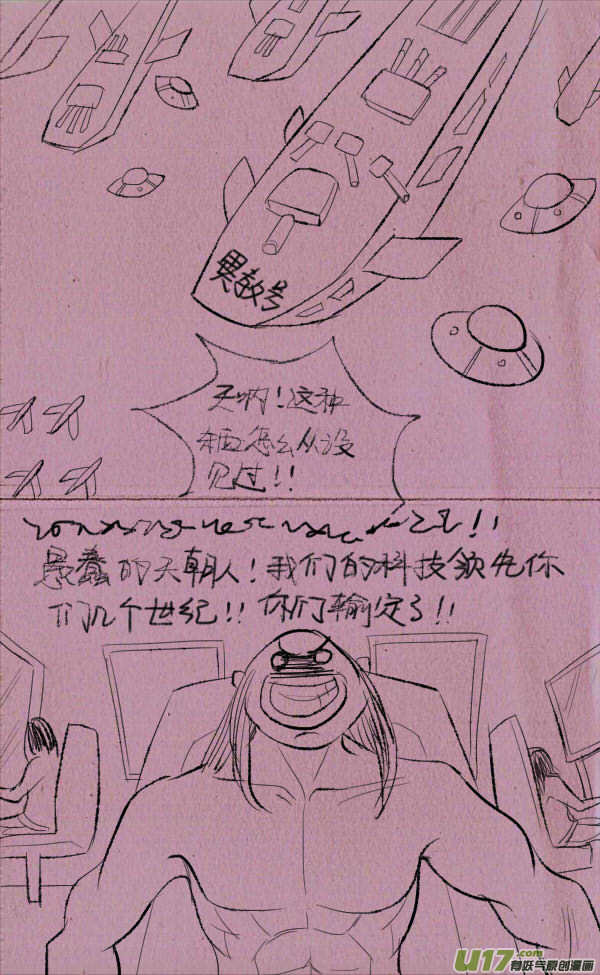 異教号
天呐！这种
东西怎么从没
见过！！
愚蠢的天朝人！我们的科技领先你
们几个世纪！！你们输定了！！
U17.com
有妖气原创漫画